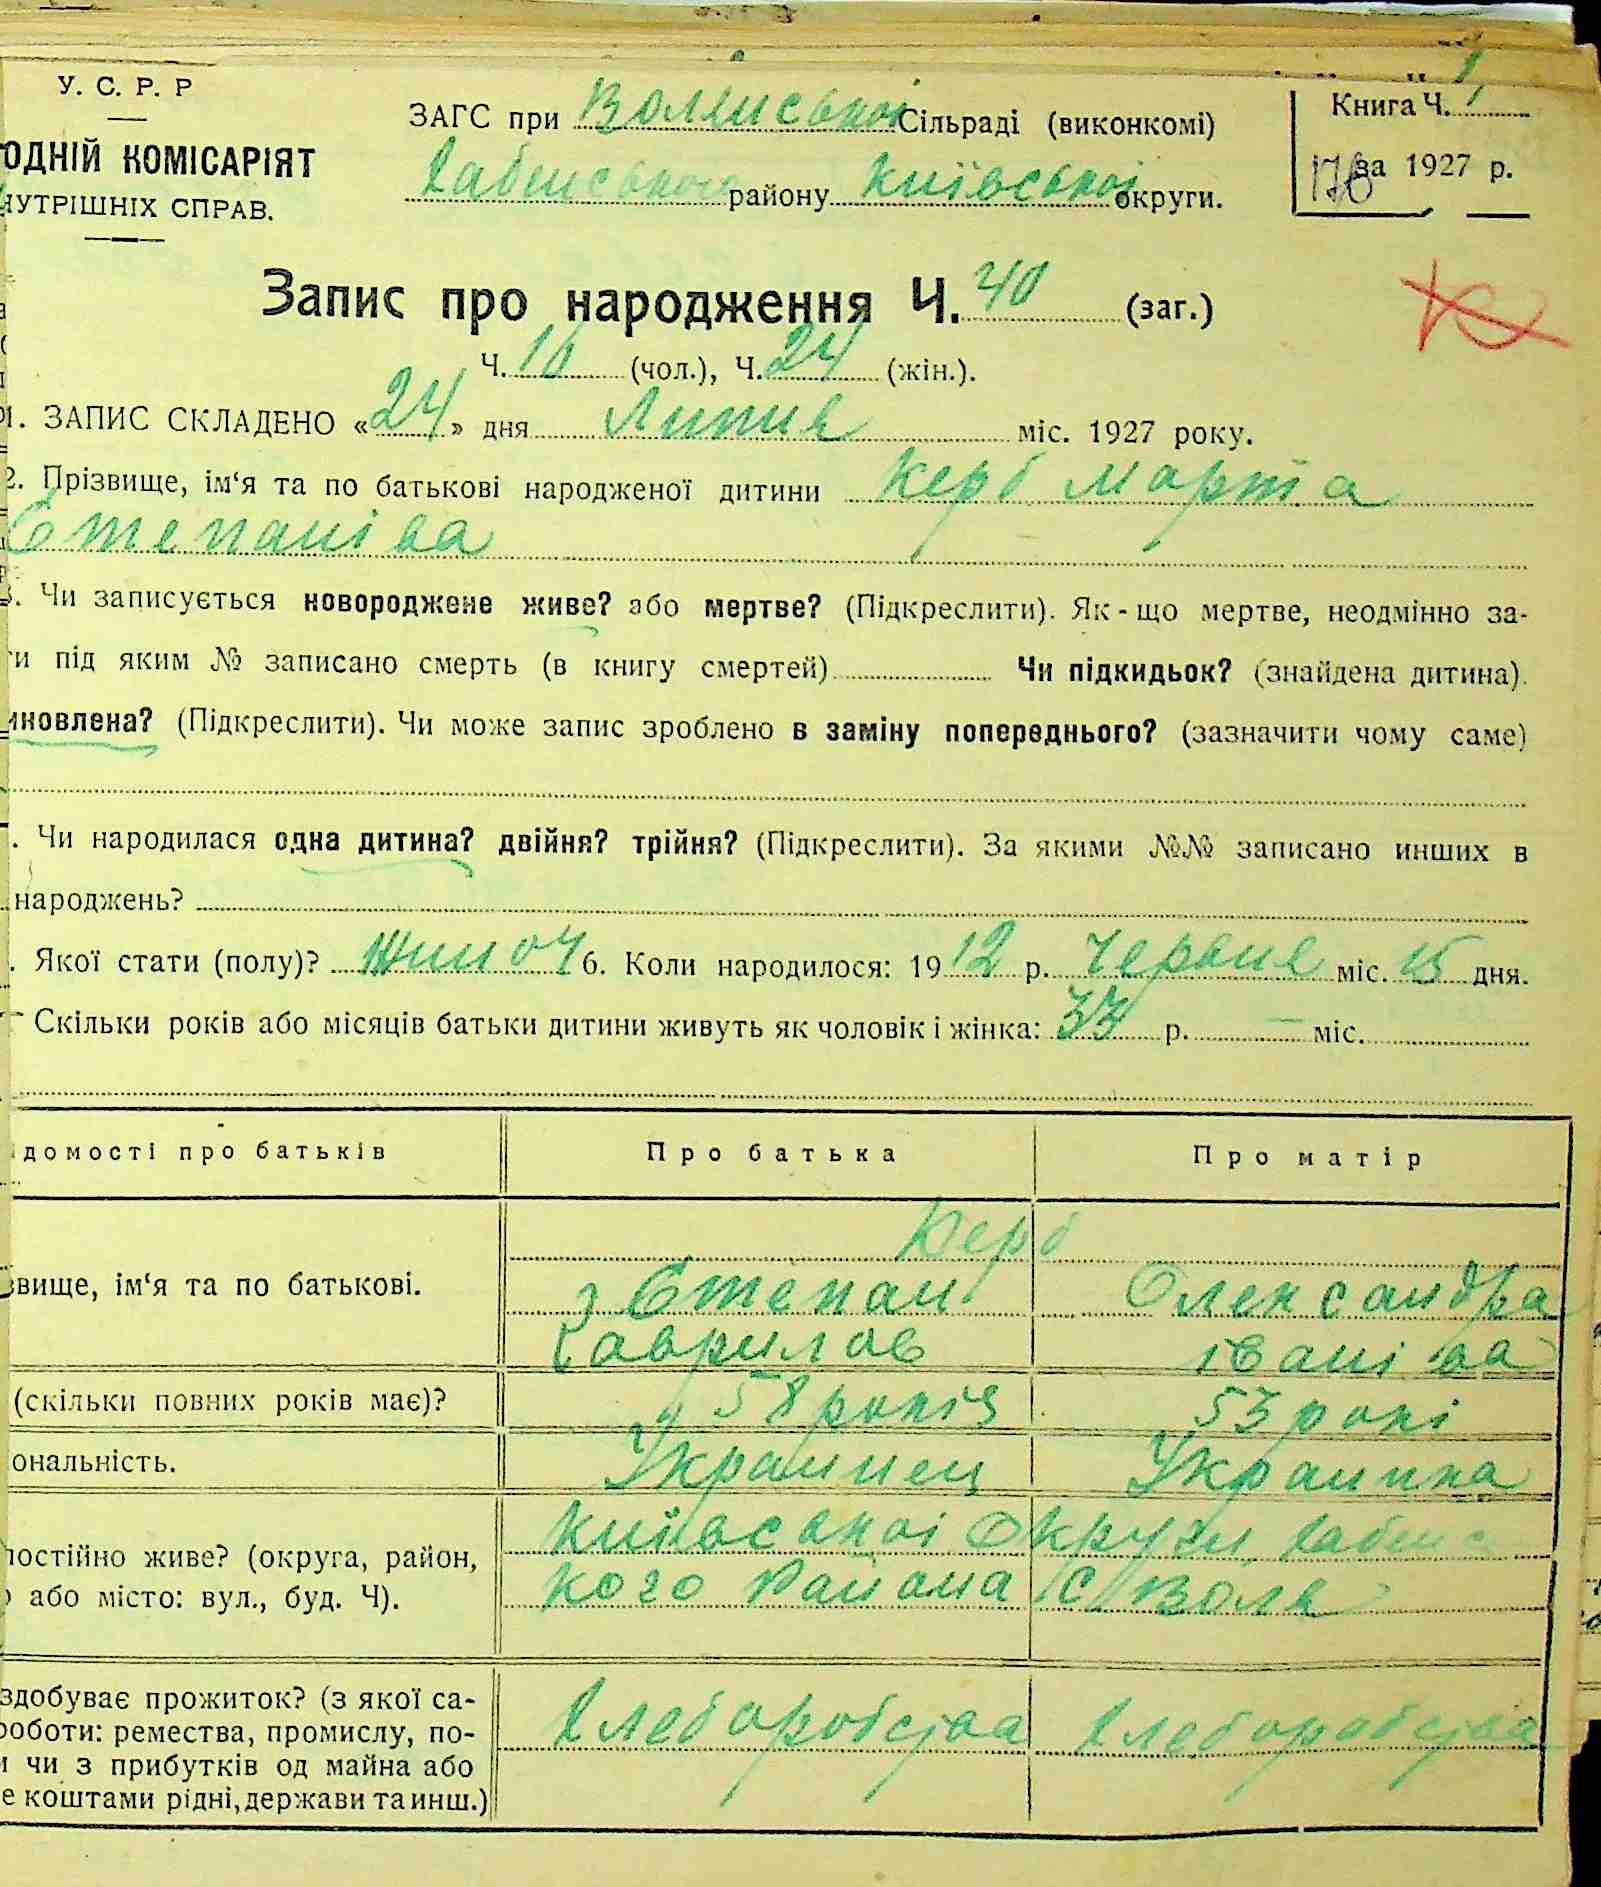 У. С. Р. Р
ЗАГС при Волянської Сільраді (виконкомі)
Книга Ч. 1
ОДНІЙ КОМІСАРІЯТ
Хабенського району Київської округи.
176 за 1927 р.
НУТРІШНІХ СПРАВ.
Запис про народження Ч. 40 (заг.)
Ч. 16 (чол.), Ч. 24 (жін.).
1. ЗАПИС СКЛАДЕНО «24» дня Липня міс. 1927 року.
2. Прізвище, ім‘я та по батькові народженої дитини Керб Марта
Степаніва
3. Чи записується новороджене живе? або мертве? (Підкреслити). Як-що мертве, неодмінно за-
ти під яким № записано смерть (в книгу смертей) Чи підкидьок? (знайдена дитина).
новлена? (Підкреслити). Чи може запис зроблено в заміну попереднього? (зазначити чому саме)
. Чи народилася одна дитина? двійня? трійня? (Підкреслити). За якими №№ записано инших в
народжень?
. Якої стати (полу)? Жиноч 6. Коли народилося: 1912 р. Червня міс. 15 дня.
Скільки років або місяців батьки дитини живуть як чоловік і жінка: 33 р. — міс.
ідомості про батьків Про батька Про матір
Керб
звище, ім‘я та по батькові. Степан Олександра
Гаврилов івані ва
(скільки повних років має)? 58 років 53 рокі
ональність. Украинец Украинка
Київської Округи Хабенс
постійно живе? (округа, район,
кого Района С Воля
або місто: вул., буд. Ч).
здобуває прожиток? (з якої са- Хлеборобства Хлеборобства
роботи: ремества, промислу, по-
и чи з прибутків од майна або
е коштами рідні, держави та инш.)